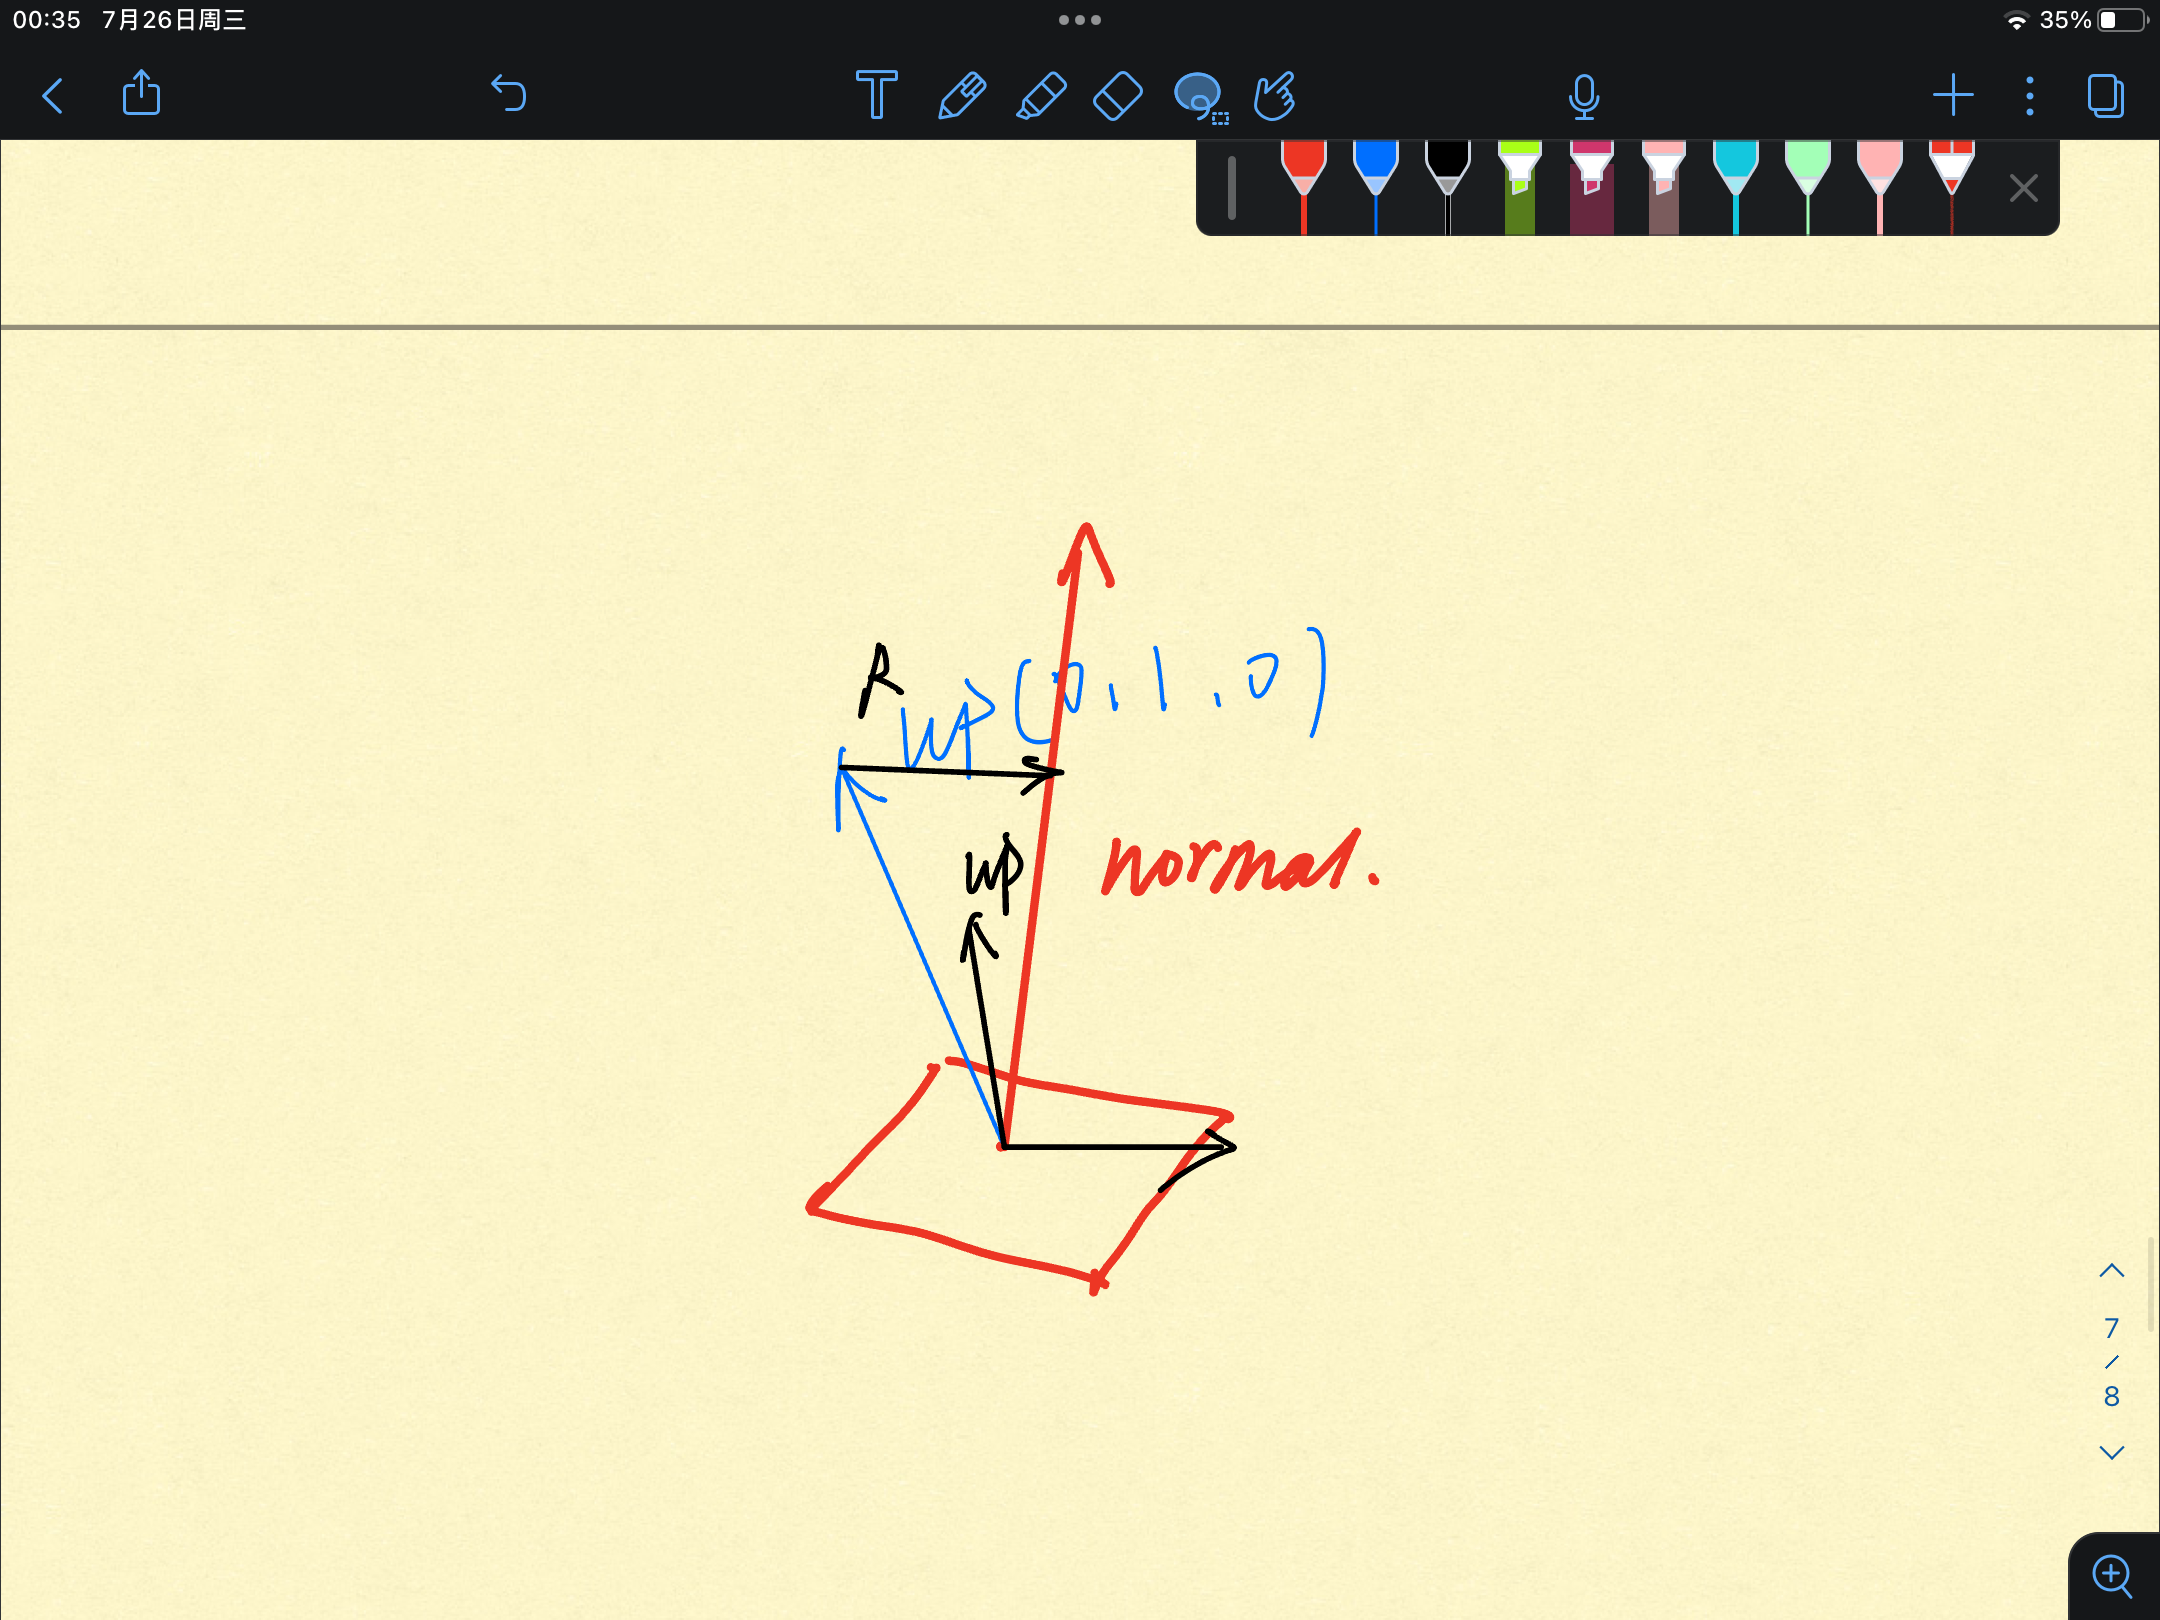 00:35 7月26日周三
35%
R
up(0,1,0)
up
normal.
7
/
8